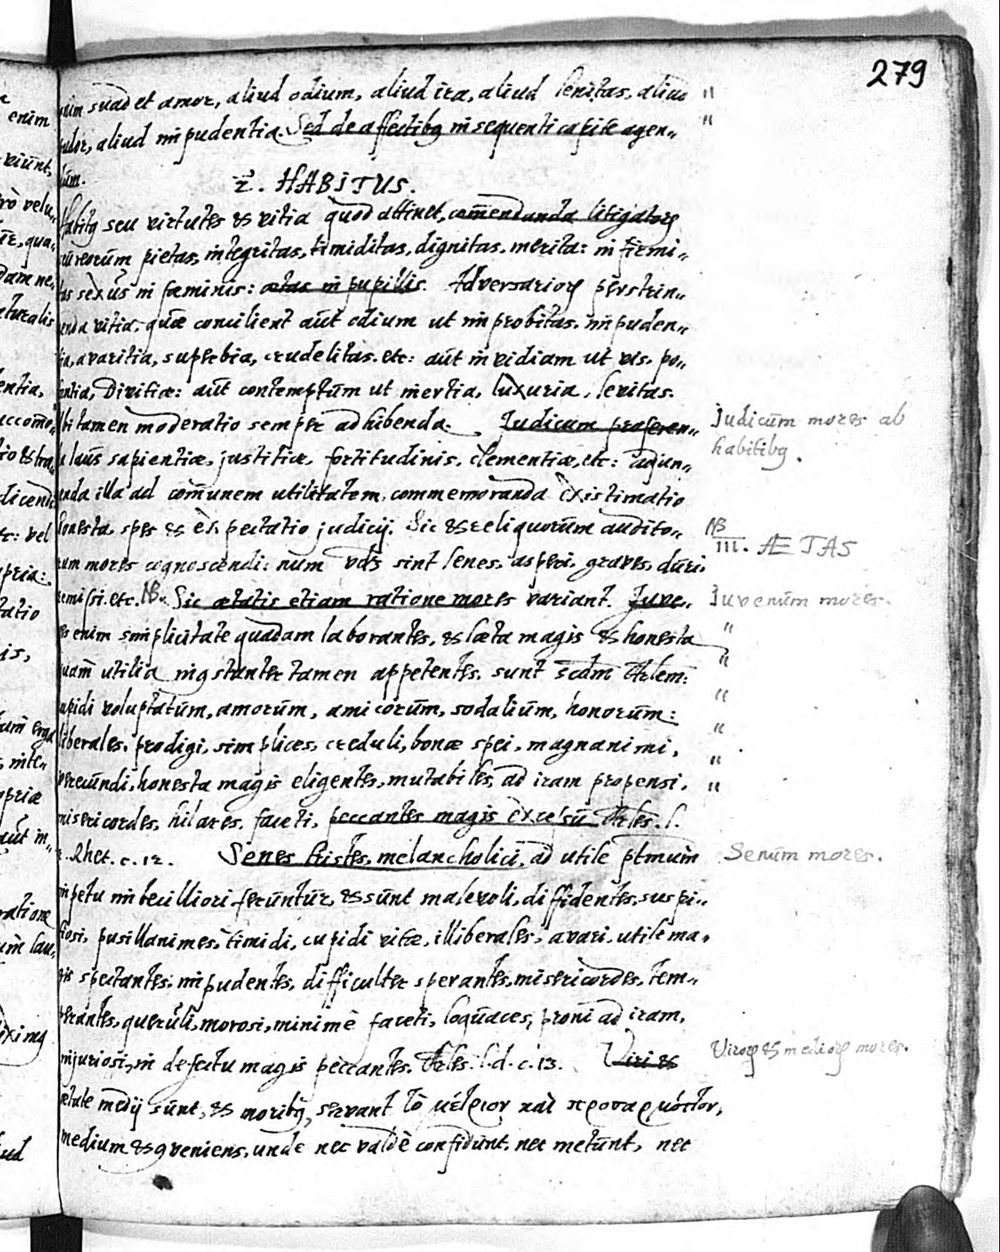 279
enim suadet amor, aliud odium, aliud ira, aliud lenitas, aliud "
pudor, aliud impudentia. Sed de affectibꝯ in sequenti capite agen„ "
dum.
2. HABITUS.
Habitꝯ seu virtutes & vitia quod attinet, com̄endanda litigatorꝝ
reorum pietas, integritas, timiditas, dignitas, merita: in firmi„
tas sexus in fœminis: ætas in pupillis. Adversariorꝝ perstrin„
enda vitia, quæ concilient aut odium ut improbitas, impuden„
tia, avaritia, superbia, crudelitas. etc: aut invidiam ut vis, po„
tentia, Divitiæ: aut contemptum ut inertia, luxuria, levitas.
Ubi tamen moderatio semper adhibenda. Judicum proferen„
a laus sapientiæ, justitiæ, fortitudinis, clementiæ, etc: adjun„
enda illa ad com̄unem utilitatem, commemoranda existimatio
honesta, spes & expectatio judicij. Sic & reliquorum audito„
rum mores cognoscendi: num vdꝫ sint senes, asperi, graves, duri,
remissi. etc. NB. Sic ætatis etiam ratione mores variant. Juve„
es enim simplicitate quadam laborantes, & læta magis & honesta
quam utilia instanter tamen appetentes, sunt scdm Arlem:
cupidi voluptatum, amorum, amicorum, sodalium, honorum:
liberales, prodigi, simplices, creduli, bonæ spei, magnanimi,
verecundi, honesta magis eligentes, mutabiles, ad iram propensi,
misericordes, hilares, faceti, peccantes magis excessu Arles. l.
2. Rhet. c. 12. Senes tristes, melancholici, ad utile ptmum
impetu imbecilliori feruntur, & sunt malevoli, diffidentes, suspi„
tiosi, pusillanimes, timidi, cupidi vitæ, illiberales, avari, utile ma„
gis spectantes, impudentes, difficulter sperantes, misericordes, tem„
perantes, queruli, morosi, minimè faceti, loquaces, proni ad iram,
injuriosi, in defectu magis peccantes. Arles. l. d. c. 13. Viri &
ætate medij sunt, & moribꝯ, servant τὸ μέτριον καὶ προσαρμόττον,
medium & ꝯveniens, unde nec valdè confidunt, nec metunt, nec
Judicum mores ab
habitibꝯ.
NB
III. ÆTAS
Juvenum mores.
"
"
"
"
"
"
Senum mores.
Virorꝝ & mediorꝝ mores.
enim
viunt,
rò velu„
qua„
dam ne„
aturalis
entia,
accom̄o„
dicend
vel
pria:
tatio
is,
erga
inte„
opriæ
aut in„
ratione
lau„